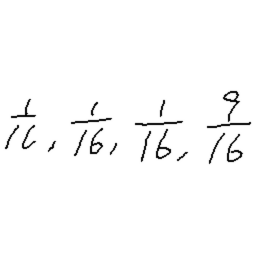 1/16, 1/16, 1/16, 9/16